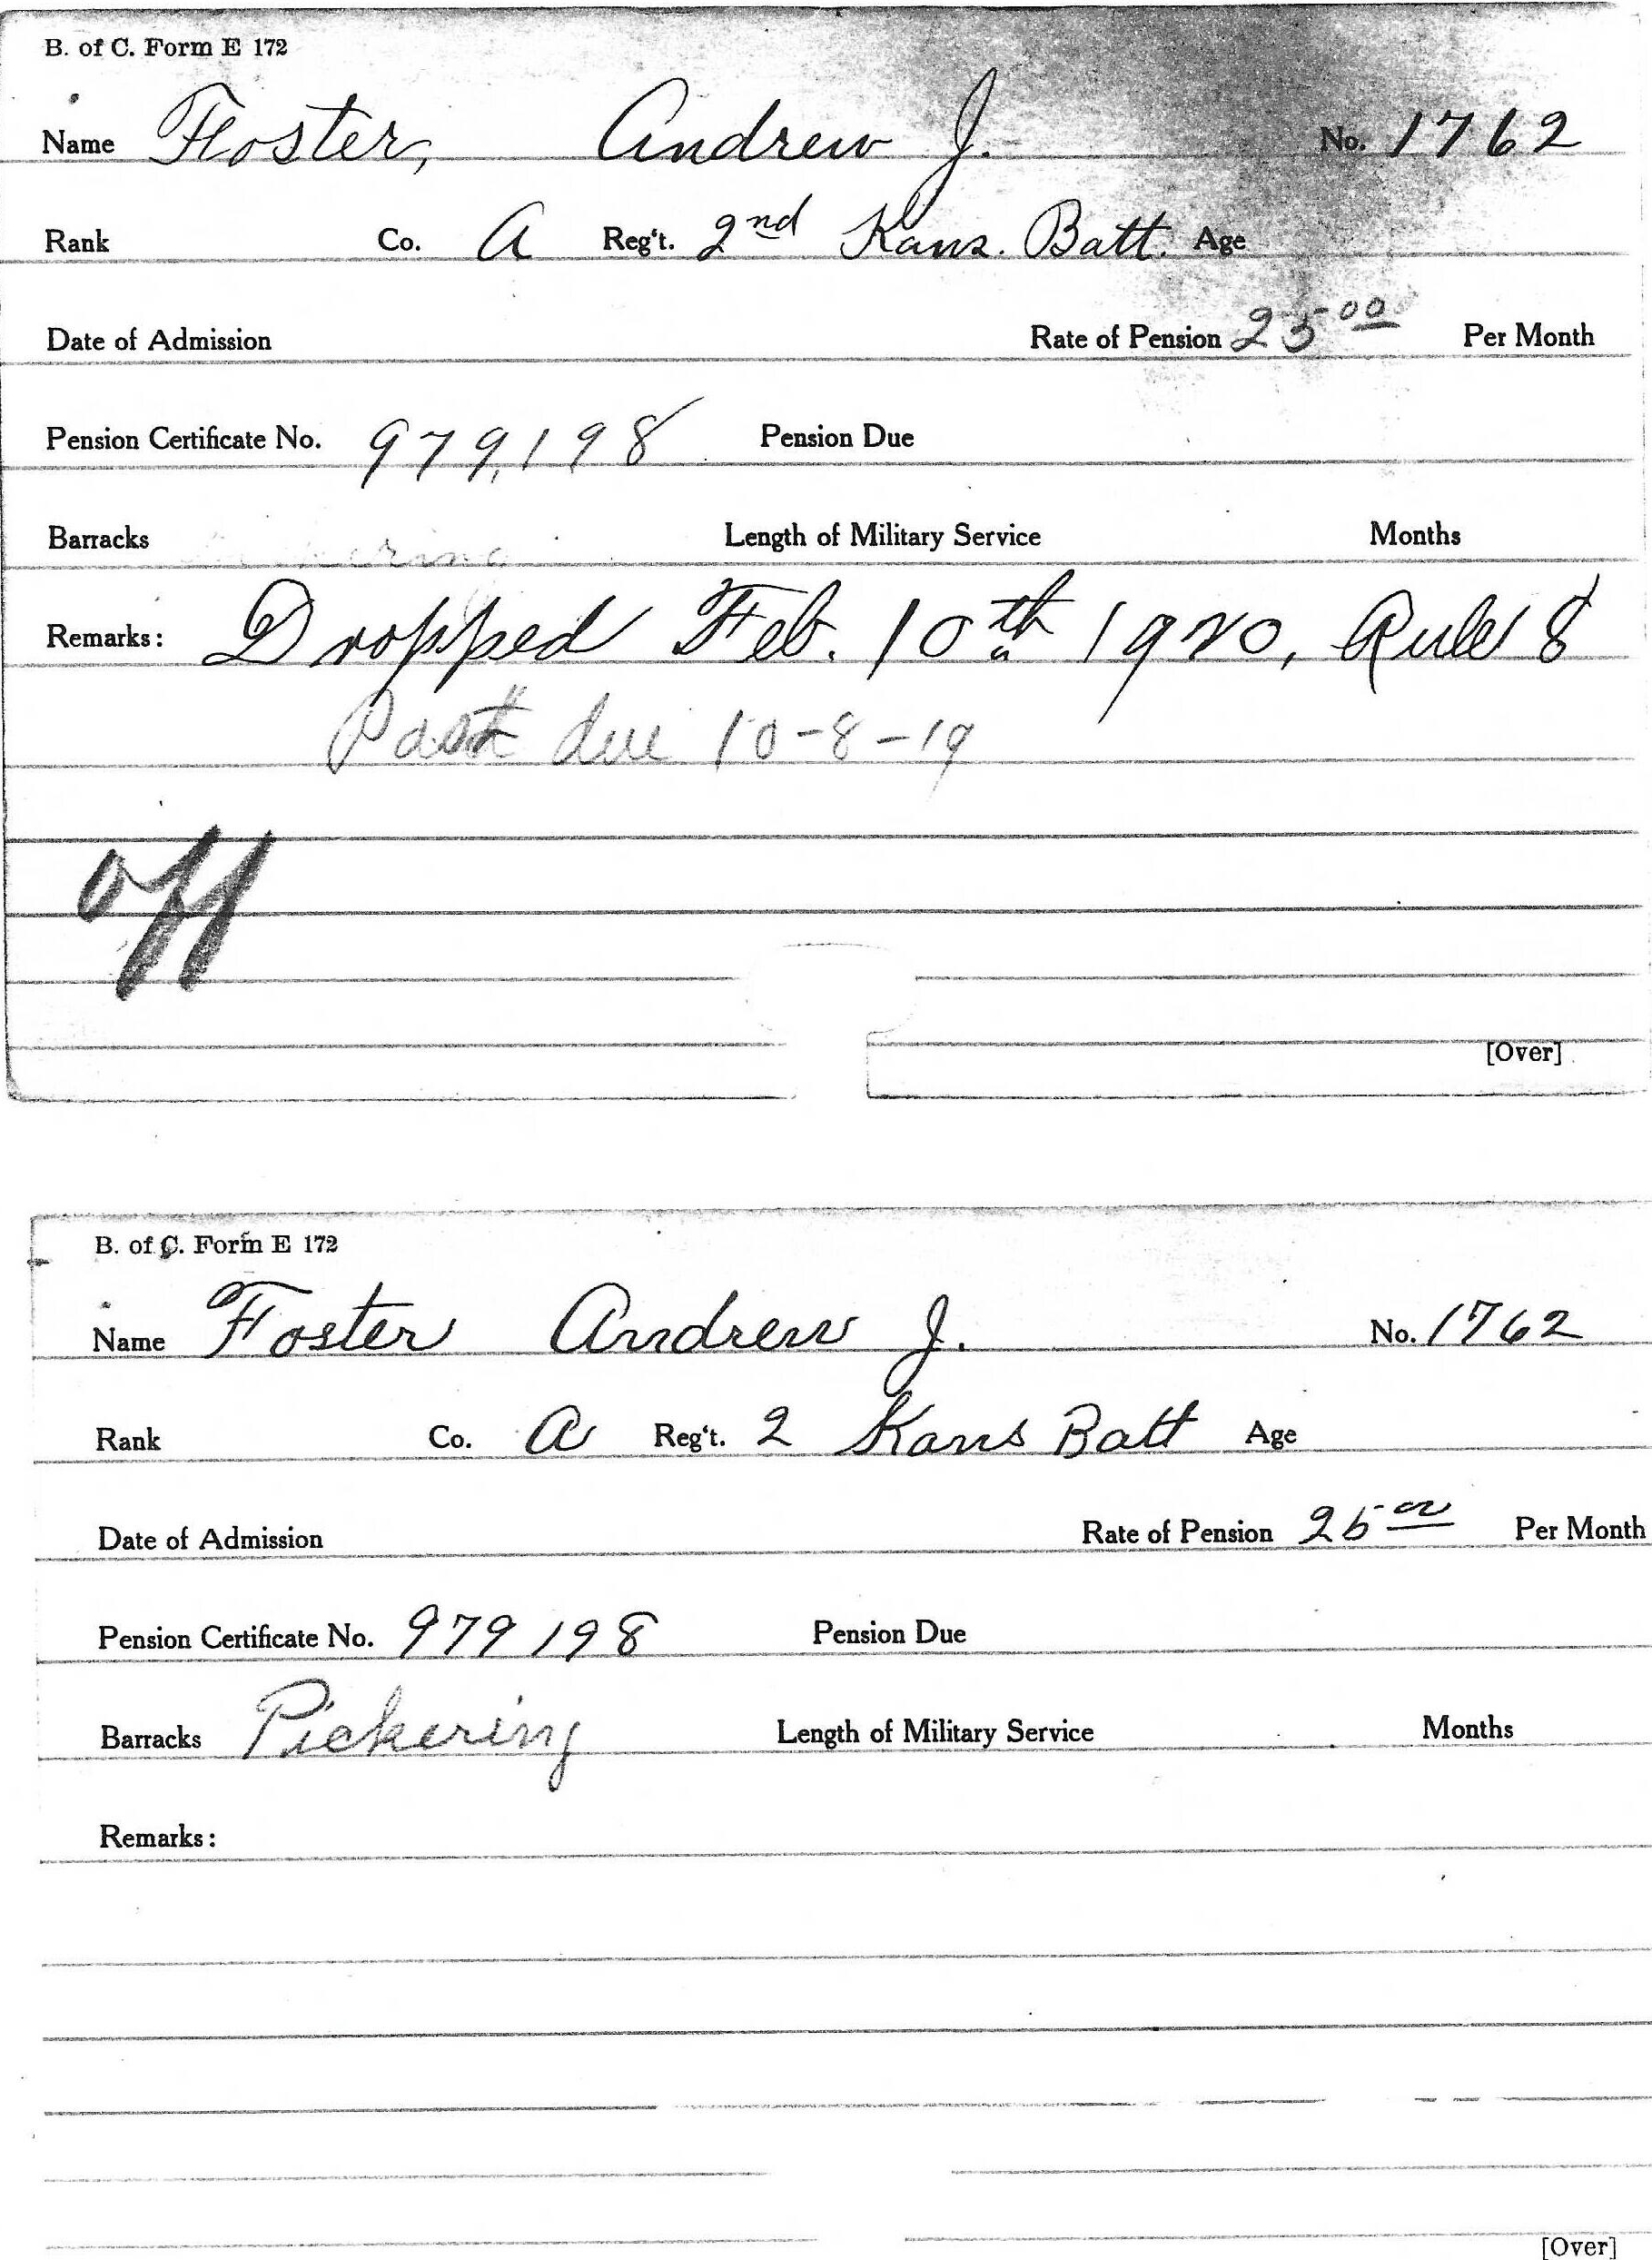 B. of C. Form E 172
Name Foster, Andrew J. No. 1762
Rank Co. A Reg't. 2nd Kans. Batt. Age
Date of Admission Rate of Pension 25 00 Per Month
Pension Certificate No. 979,198 Pension Due
Barracks Length of Military Service Months
Remarks: Dropped Feb. 10th 1920, Rule 8
Past due 10-8-19
off
[Over]
B. of C. Form E 172
Name Foster Andrew J. No. 1762
Rank Co. A Reg't. 2 Kans Batt Age
Date of Admission Rate of Pension 25 00 Per Month
Pension Certificate No. 979198 Pension Due
Barracks Pickering Length of Military Service Months
Remarks:
[Over]